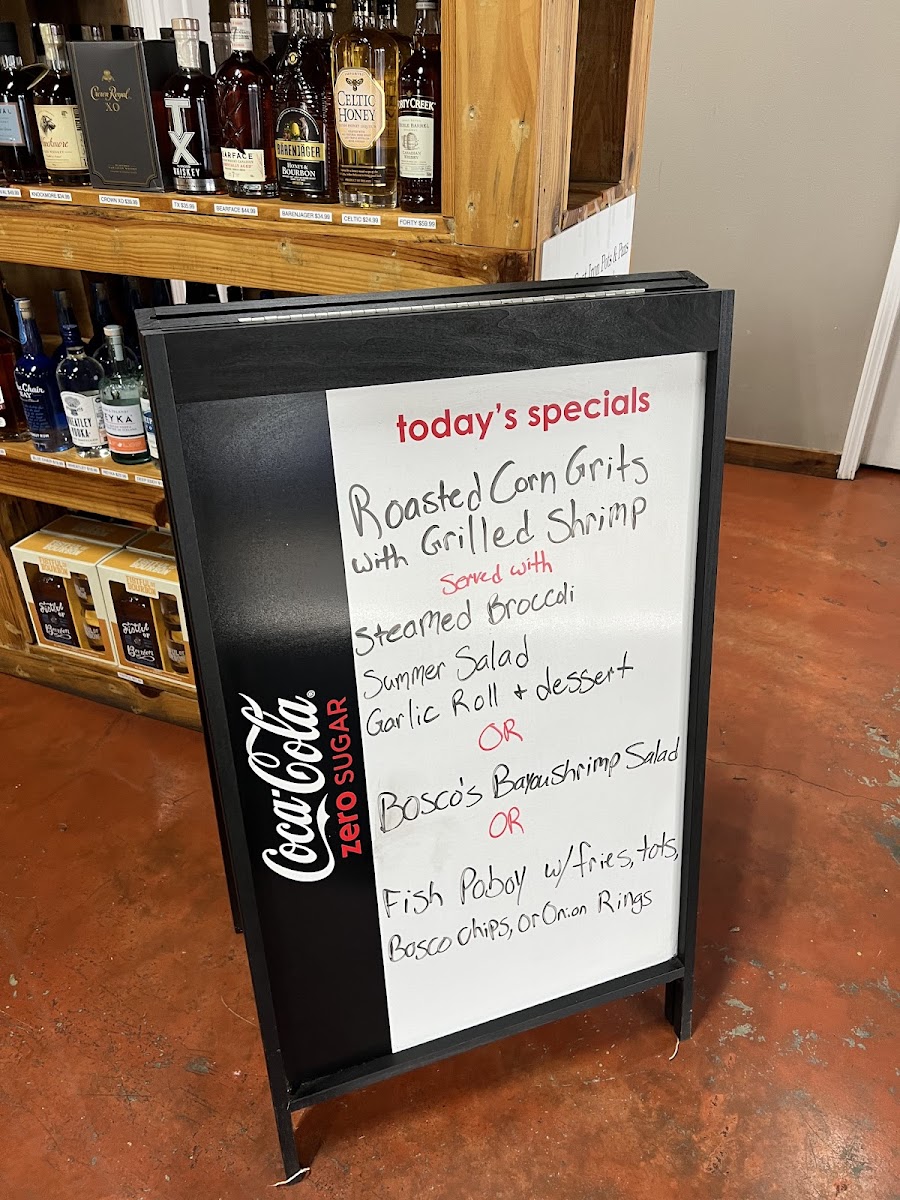 Crown Royal
XO
TX
WHISKEY
BÄRENJÄGER
HONEY &
BOURBON
CELTIC
HONEY
KNOCKMORE $34.99
CROWN XO $39.99
TX $35.99
BEARFACE $44.99
BARENJAGER $34.99
CELTIC $24.99
FORTY $59.99
Iron Pots & Pans
today's specials
Roasted Corn Grits
with Grilled Shrimp
Served with
Steamed Broccoli
Summer Salad
Garlic Roll + dessert
OR
Bosco's Bayou shrimp Salad
OR
Fish Poboy w/fries, tots,
Bosco chips, or Onion Rings
Coca-Cola®
zero SUGAR